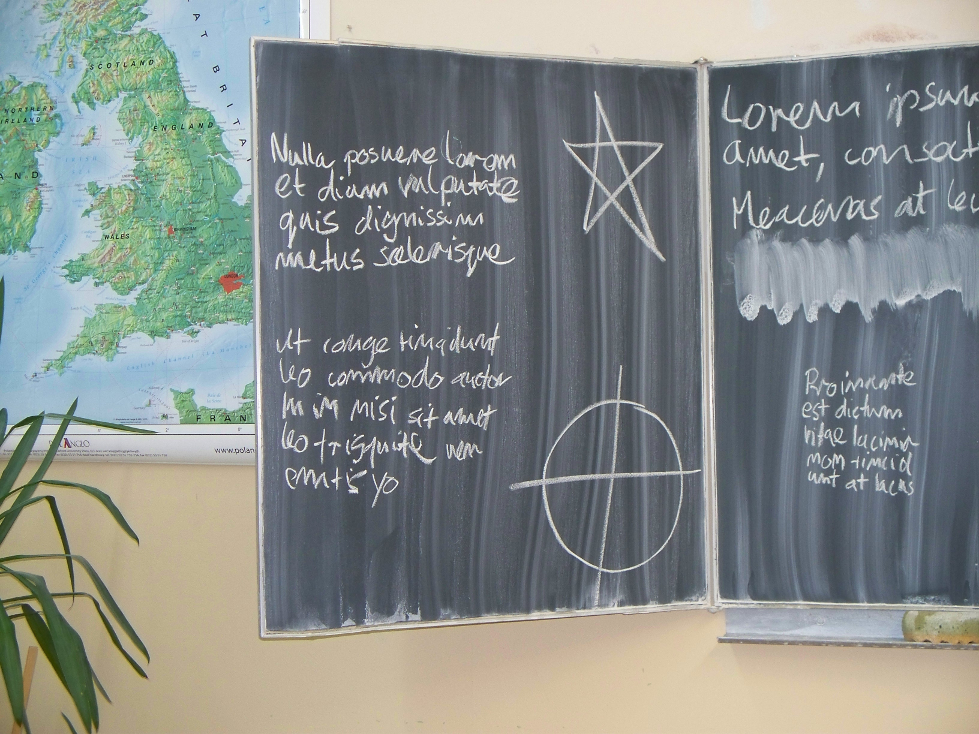 SCOTLAND
NORTHERN
IRELAND
ENGLAND
WALES
AT BRITAI
AND
English Channel
FRAN
www.polan
Nulla posuere lorem
et diam vulputate
quis dignissim
metus scelerisque
Ut conge tincidunt
leo commodo auctor
In in nisi sit amet
leo tristique
Lorem ipsum
amet, consect
Meacenas at leo
Proin ante
est dictum
vitae lacinia
non tincid
unt at lacus